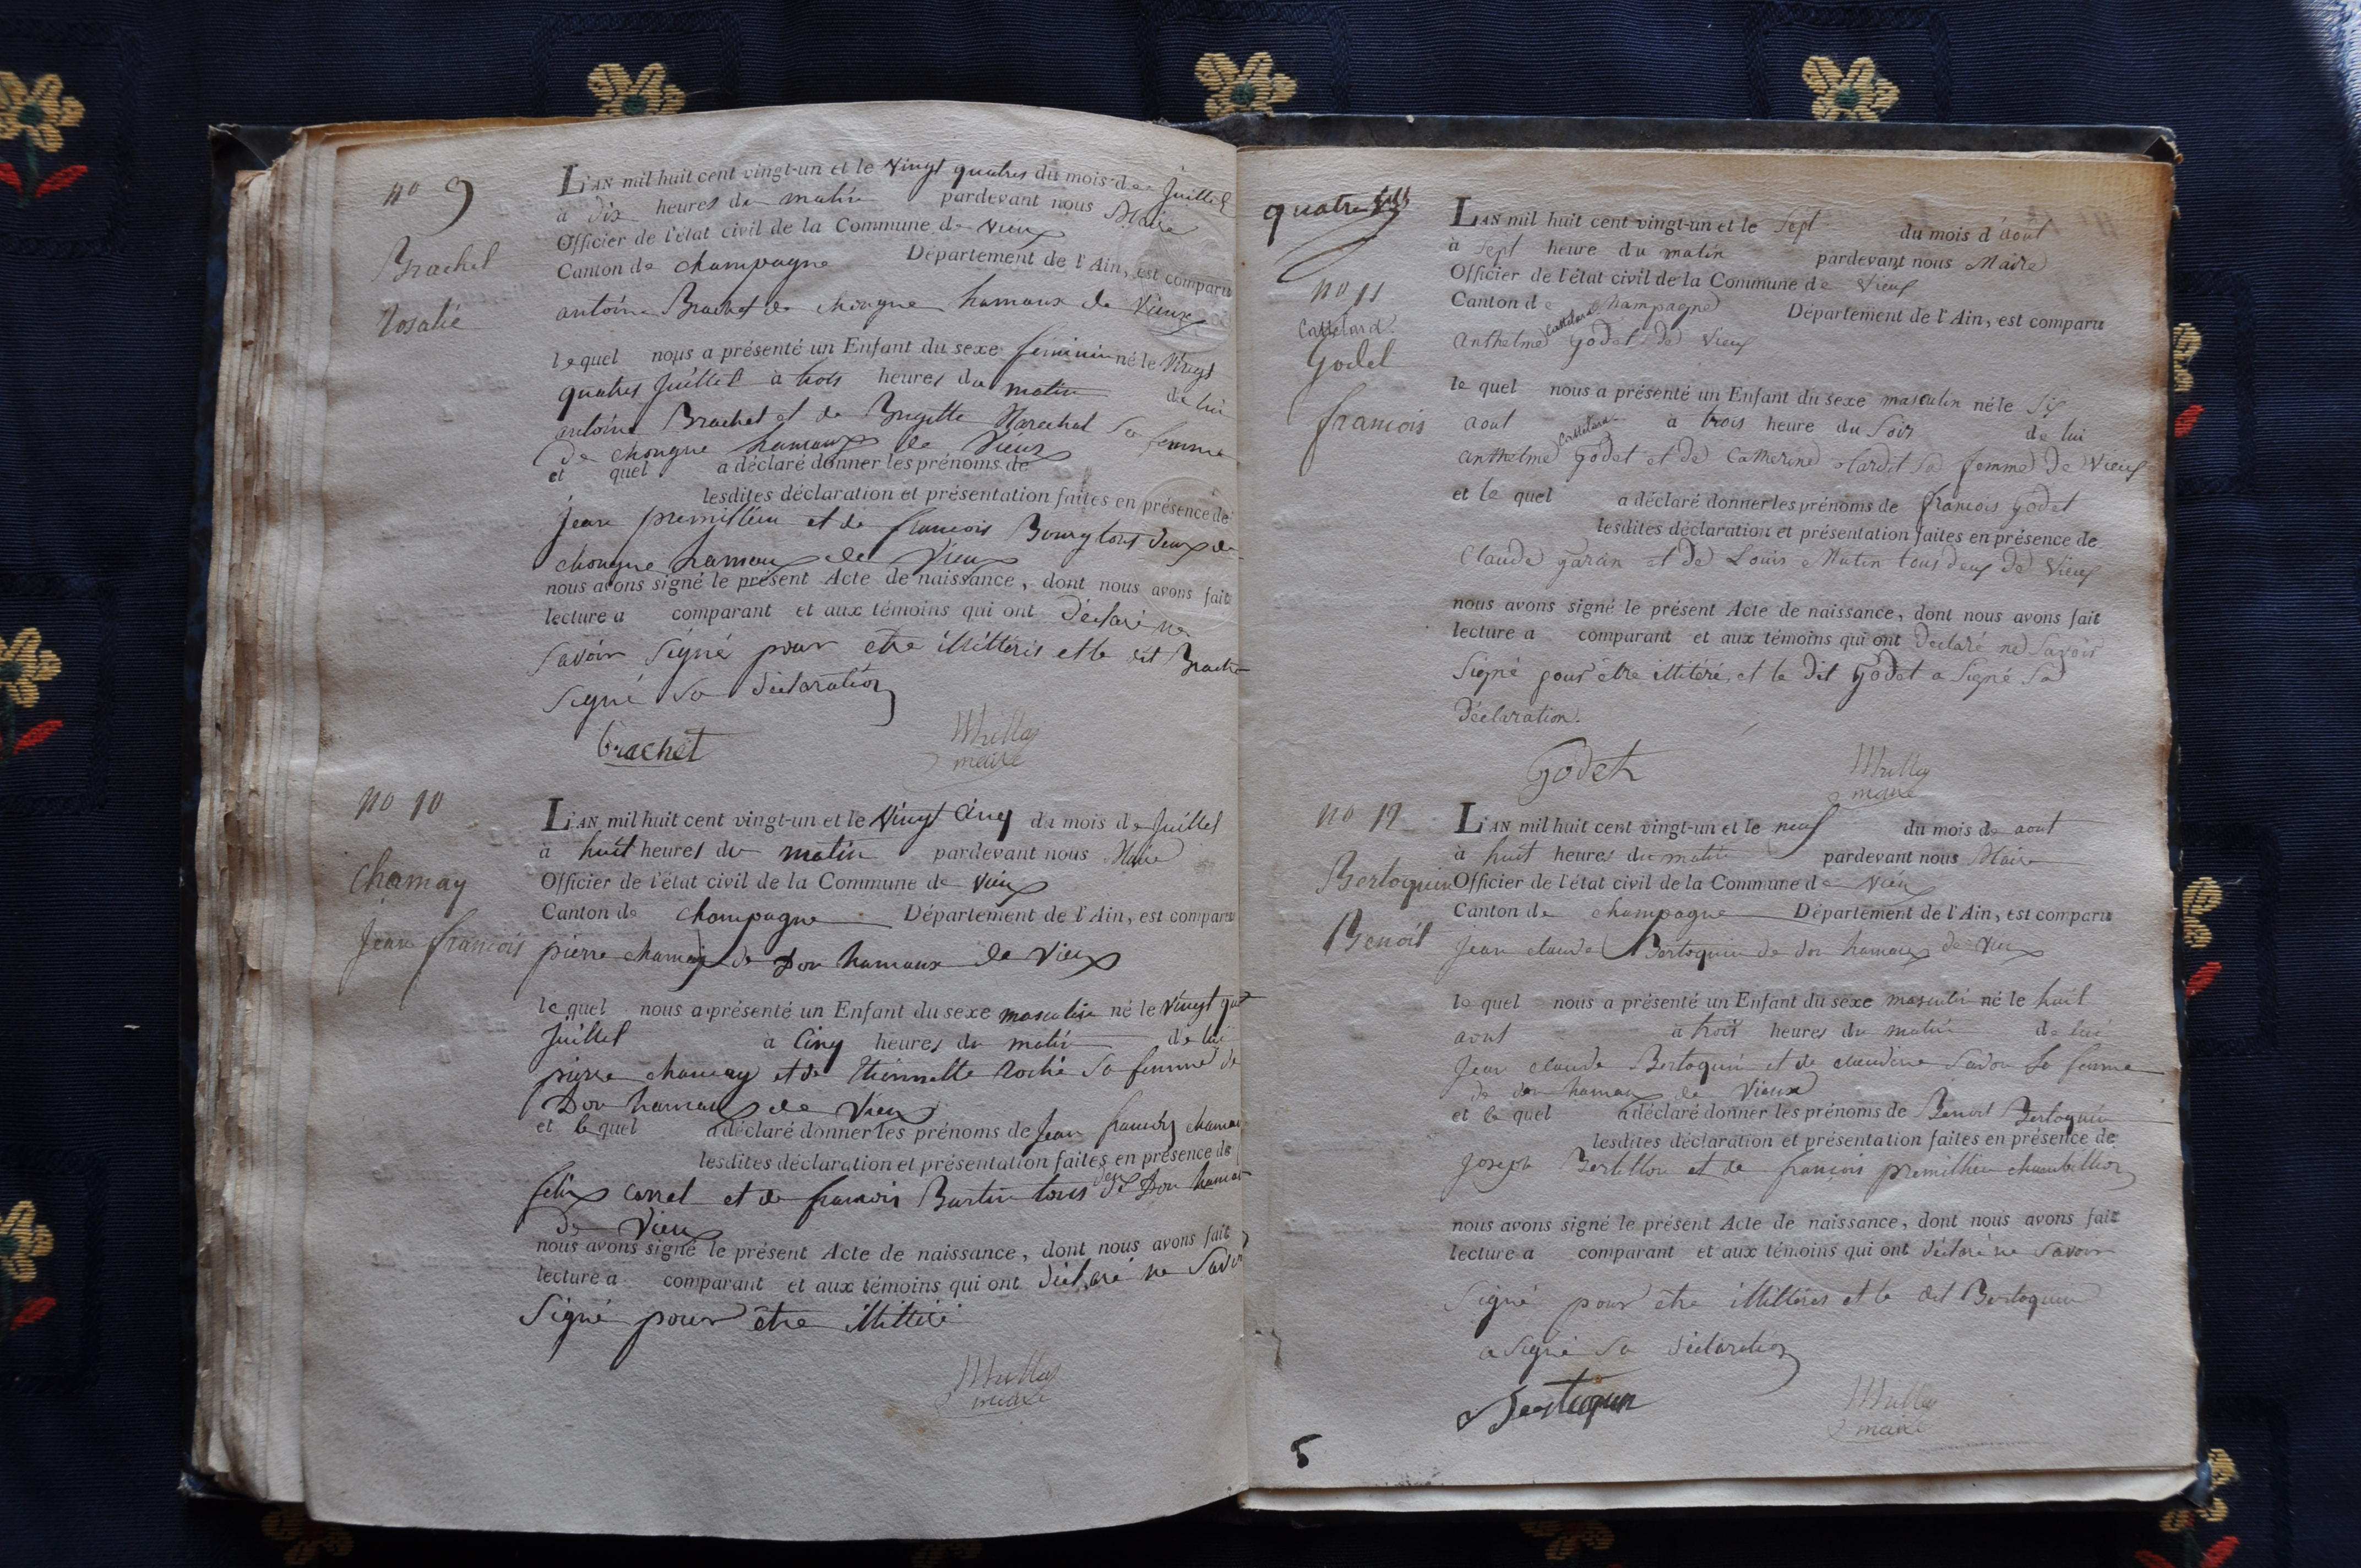 no 9
Brachet
Rosalie
L'AN mil huit cent vingt-un et le vingt quatres du mois de Juillet
à dix heures du matin pardevant nous Maire
Officier de l'état civil de la Commune de vieux
Canton de champagne Département de l'Ain, est comparu
antoine Brachet de chongne hamaux de Vieux
le quel nous a présenté un Enfant du sexe feminin né le vingt
quatres Juillet à trois heures du matin de lui
antoine Brachet et de Brigitte Marechal sa femme
de chongne hamaux de Vieux
et quel a déclaré donner les prénoms de
lesdites déclaration et présentation faites en présence de
Jean premillieu et de francois Bourg tous deux de
chongne hamaux de Vieux
nous avons signé le présent Acte de naissance, dont nous avons fait
lecture a comparant et aux témoins qui ont déclaré ne
savoir signé pour etre illitteris et le dit Brachet
signé sa déclaration
brachet
maire
no 10
chamay
Jean francois
L'AN mil huit cent vingt-un et le vingt cinq du mois de Juillet
à huit heures du matin pardevant nous Maire
Officier de l'état civil de la Commune de vieux
Canton de champagne Département de l'Ain, est comparu
pierre chamay de Don hamaux de Vieux
le quel nous a présenté un Enfant du sexe masculin né le vingt quat
Juillet à Cinq heures du matin de lui
pierre chamay et de Etiennette Roche sa femme de
Don hamaux de Vieux
et le quel a déclaré donner les prénoms de Jean francois chamay
lesdites déclaration et présentation faites en présence de
felix Carrel et de francois Burtin tous deux de Don hamaux
de Vieux
nous avons signé le présent Acte de naissance, dont nous avons fait
lecture a comparant et aux témoins qui ont déclaré ne savoir
Signé pour être illitteré
maire
quatre
no 11
Cattelard
Godet
francois
L'AN mil huit cent vingt-un et le sept du mois d'août
à sept heure du matin pardevant nous Maire
Officier de l'état civil de la Commune de Vieux
Canton de Champagne Département de l'Ain, est comparu
anthelme Cattelard Godet de Vieux
le quel nous a présenté un Enfant du sexe masculin né le six
aout à trois heure du soir de lui
anthelme Cattelard Godet et de Catherine hardit sa femme de Vieux
et le quel a déclaré donner les prénoms de francois Godet
lesdites déclaration et présentation faites en présence de
Claude garin et de Louis Mutin tous deux de Vieux
nous avons signé le présent Acte de naissance, dont nous avons fait
lecture a comparant et aux témoins qui ont declaré ne Savoir
Signé pour être illitéré, et le dit Godet a Signé sa
Déclaration.
Godet
maire
no 12
Bertoquin
Benoit
L'AN mil huit cent vingt-un et le neuf du mois de aout
à huit heures du matin pardevant nous Maire
Officier de l'état civil de la Commune de vieux
Canton de champagne Département de l'Ain, est comparu
Jean claude Bertoquin de don hamaux de vieux
le quel nous a présenté un Enfant du sexe masculin né le huit
aout à trois heures du matin de lui
Jean claude Bertoquin et de claudine Savon sa femme
de don hamaux de Vieux
et le quel a déclaré donner les prénoms de Benoit Bertoquin
lesdites déclaration et présentation faites en présence de
Joseph Bertillon et de françois premillieu
nous avons signé le présent Acte de naissance, dont nous avons fait
lecture a comparant et aux témoins qui ont déclaré ne savoir
Signé pour être illitteres et le dit Bertoquin
a signé sa déclaration
Bertoquin
maire
5